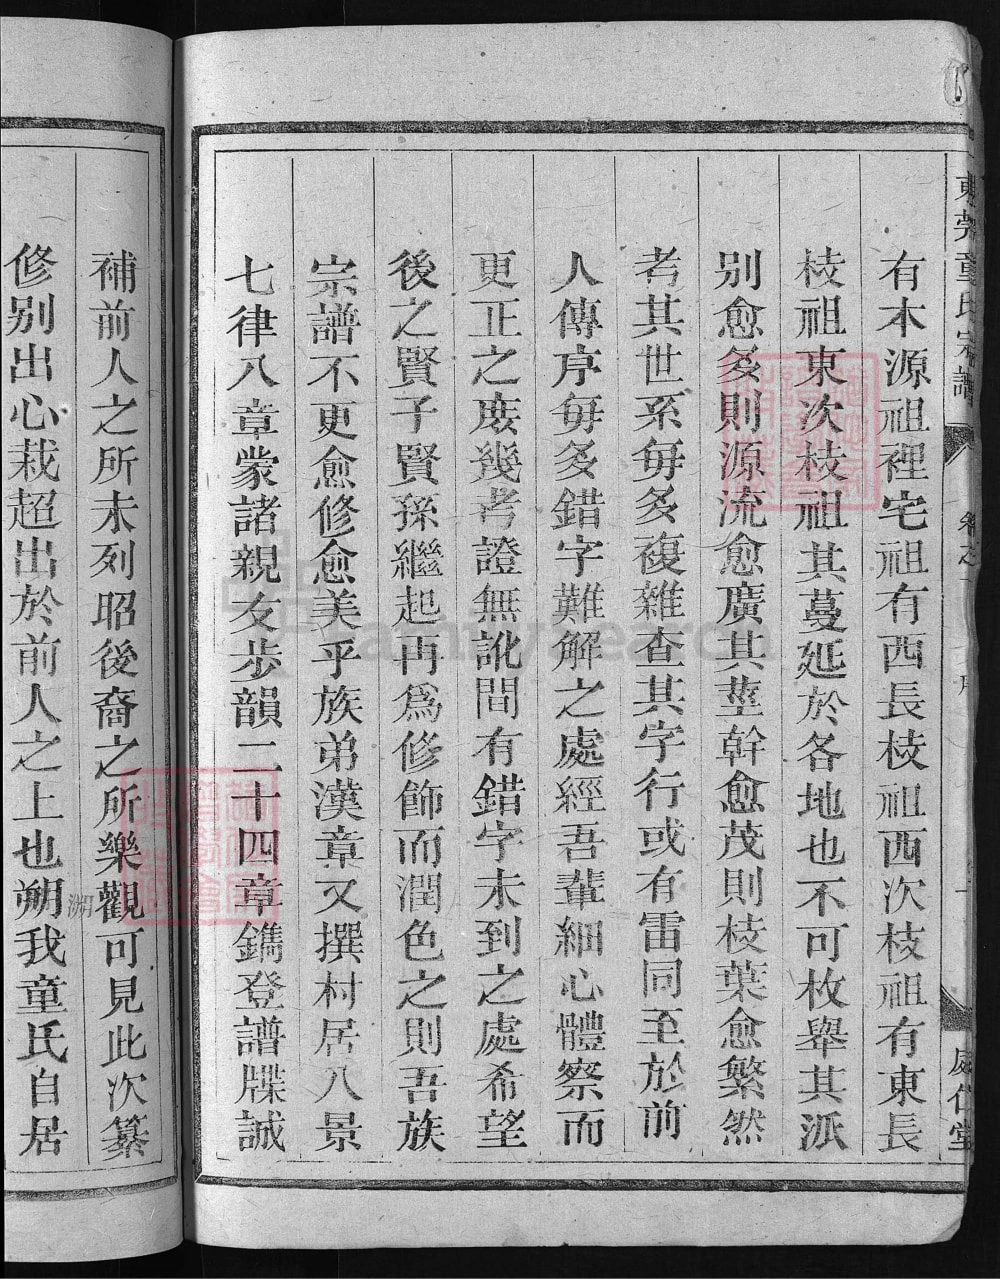 童氏宗譜
有本源祖裡宅祖有西長枝祖西次枝祖有東長
枝祖東次枝祖其蔓延於各地也不可枚舉其派
別愈多則源流愈廣其莖幹愈茂則枝葉愈繁然
考其世系每多複雜查其字行或有雷同至於前
人傳序每多錯字難解之處經吾輩細心體察而
更正之庶幾考證無訛間有錯字未到之處希望
後之賢子賢孫繼起再為修飾而潤色之則吾族
宗譜不更愈修愈美乎族弟漢章又撰村居八景
七律八章蒙諸親友步韻二十四章鐫登譜牒誠
補前人之所未列昭後裔之所樂觀可見此次纂
修別出心栽超出於前人之上也朔我童氏自居
溯
familysearch